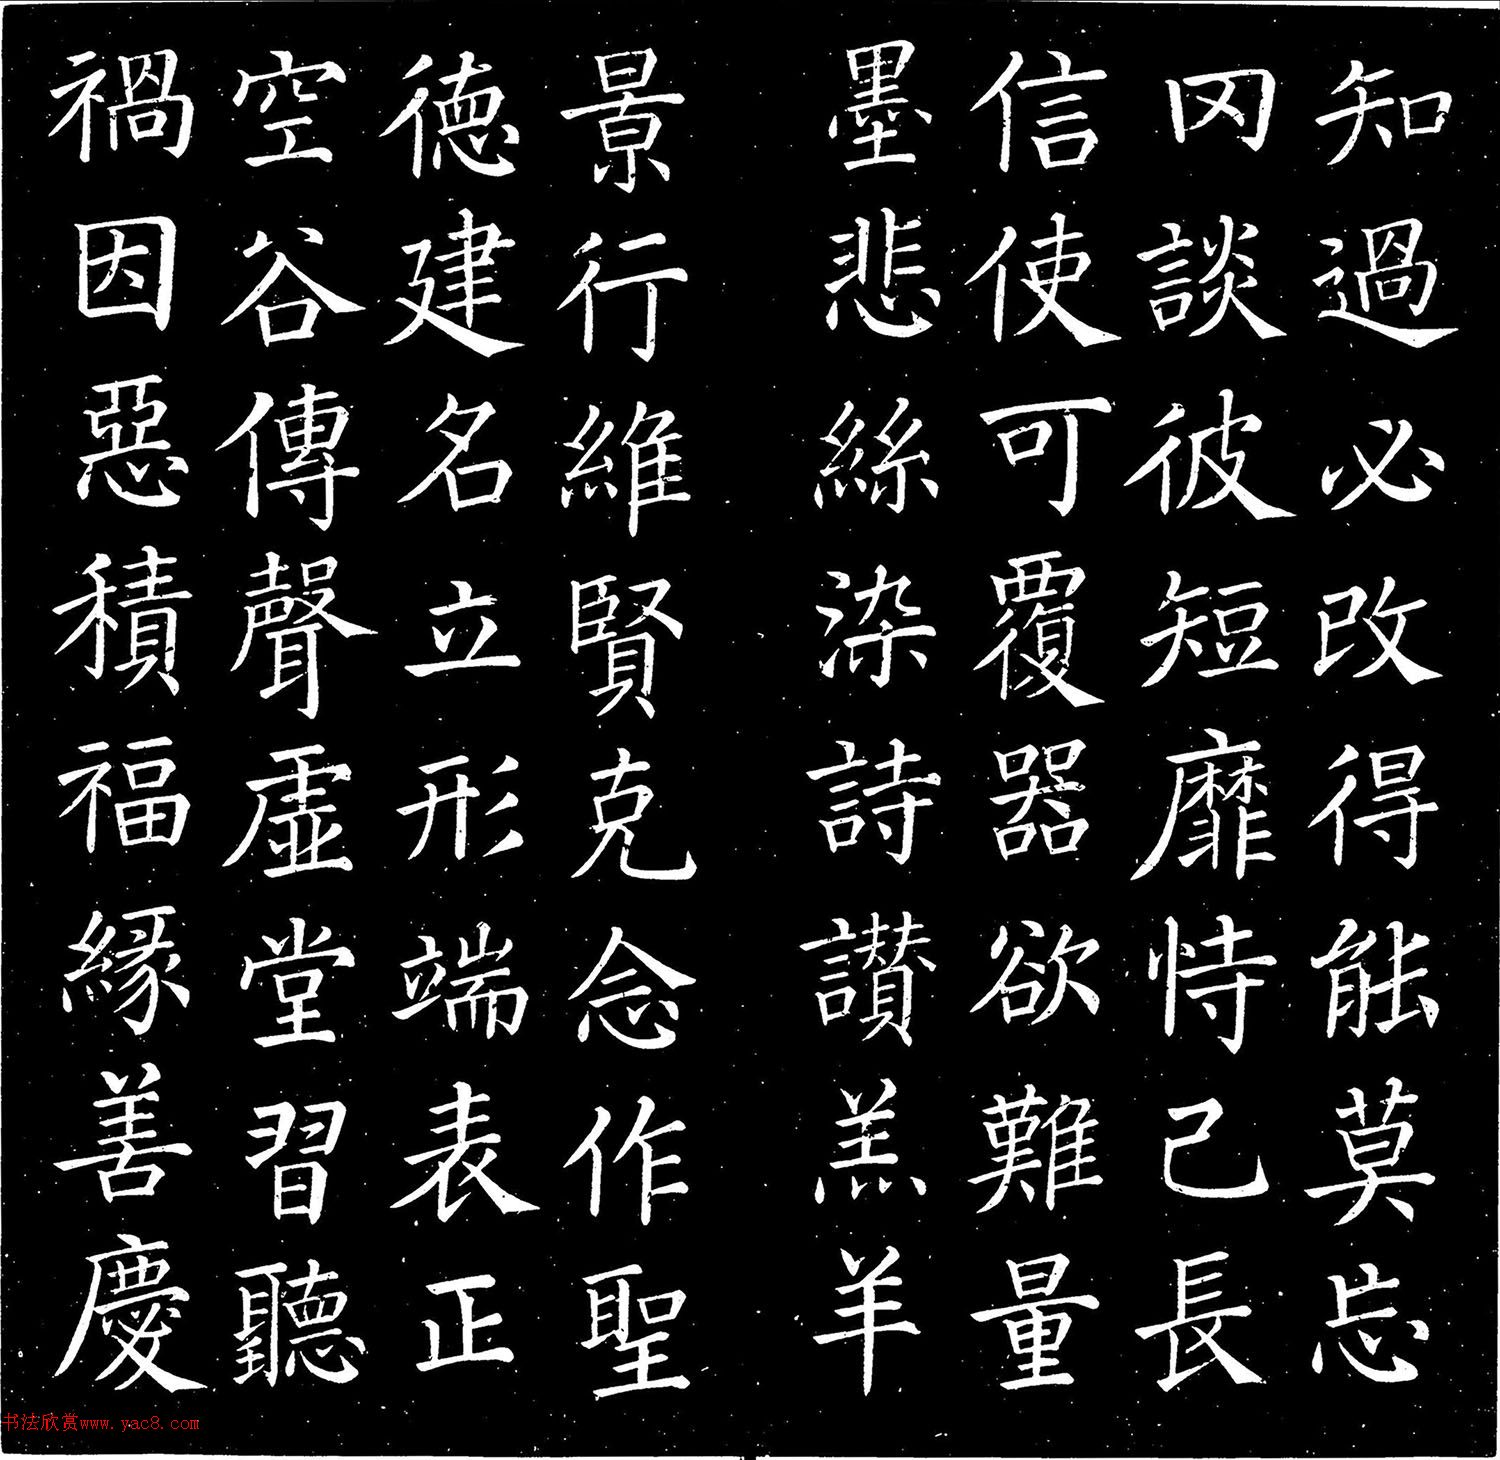 知過必改得能莫忘
罔談彼短靡恃己長
信使可覆器欲難量
墨悲絲染詩讃羔羊
景行維賢克念作聖
德建名立形端表正
空谷傳聲虛堂習聽
禍因惡積福緣善慶
书法欣赏www.yac8.com